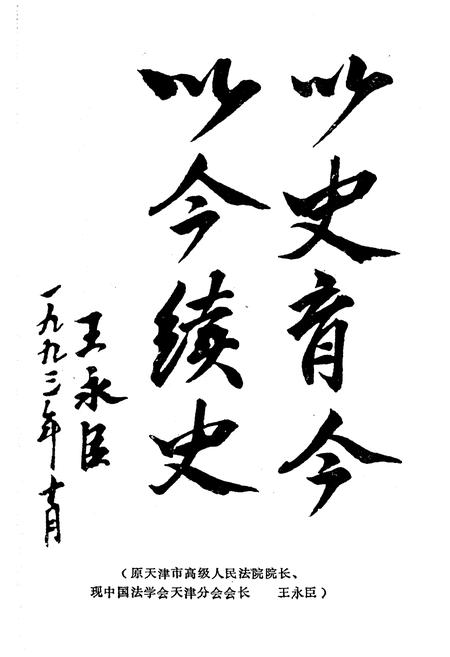 以史育今
以今续史
王永臣
一九九三年十月
（原天津市高级人民法院院长、
现中国法学会天津分会会长　　王永臣）